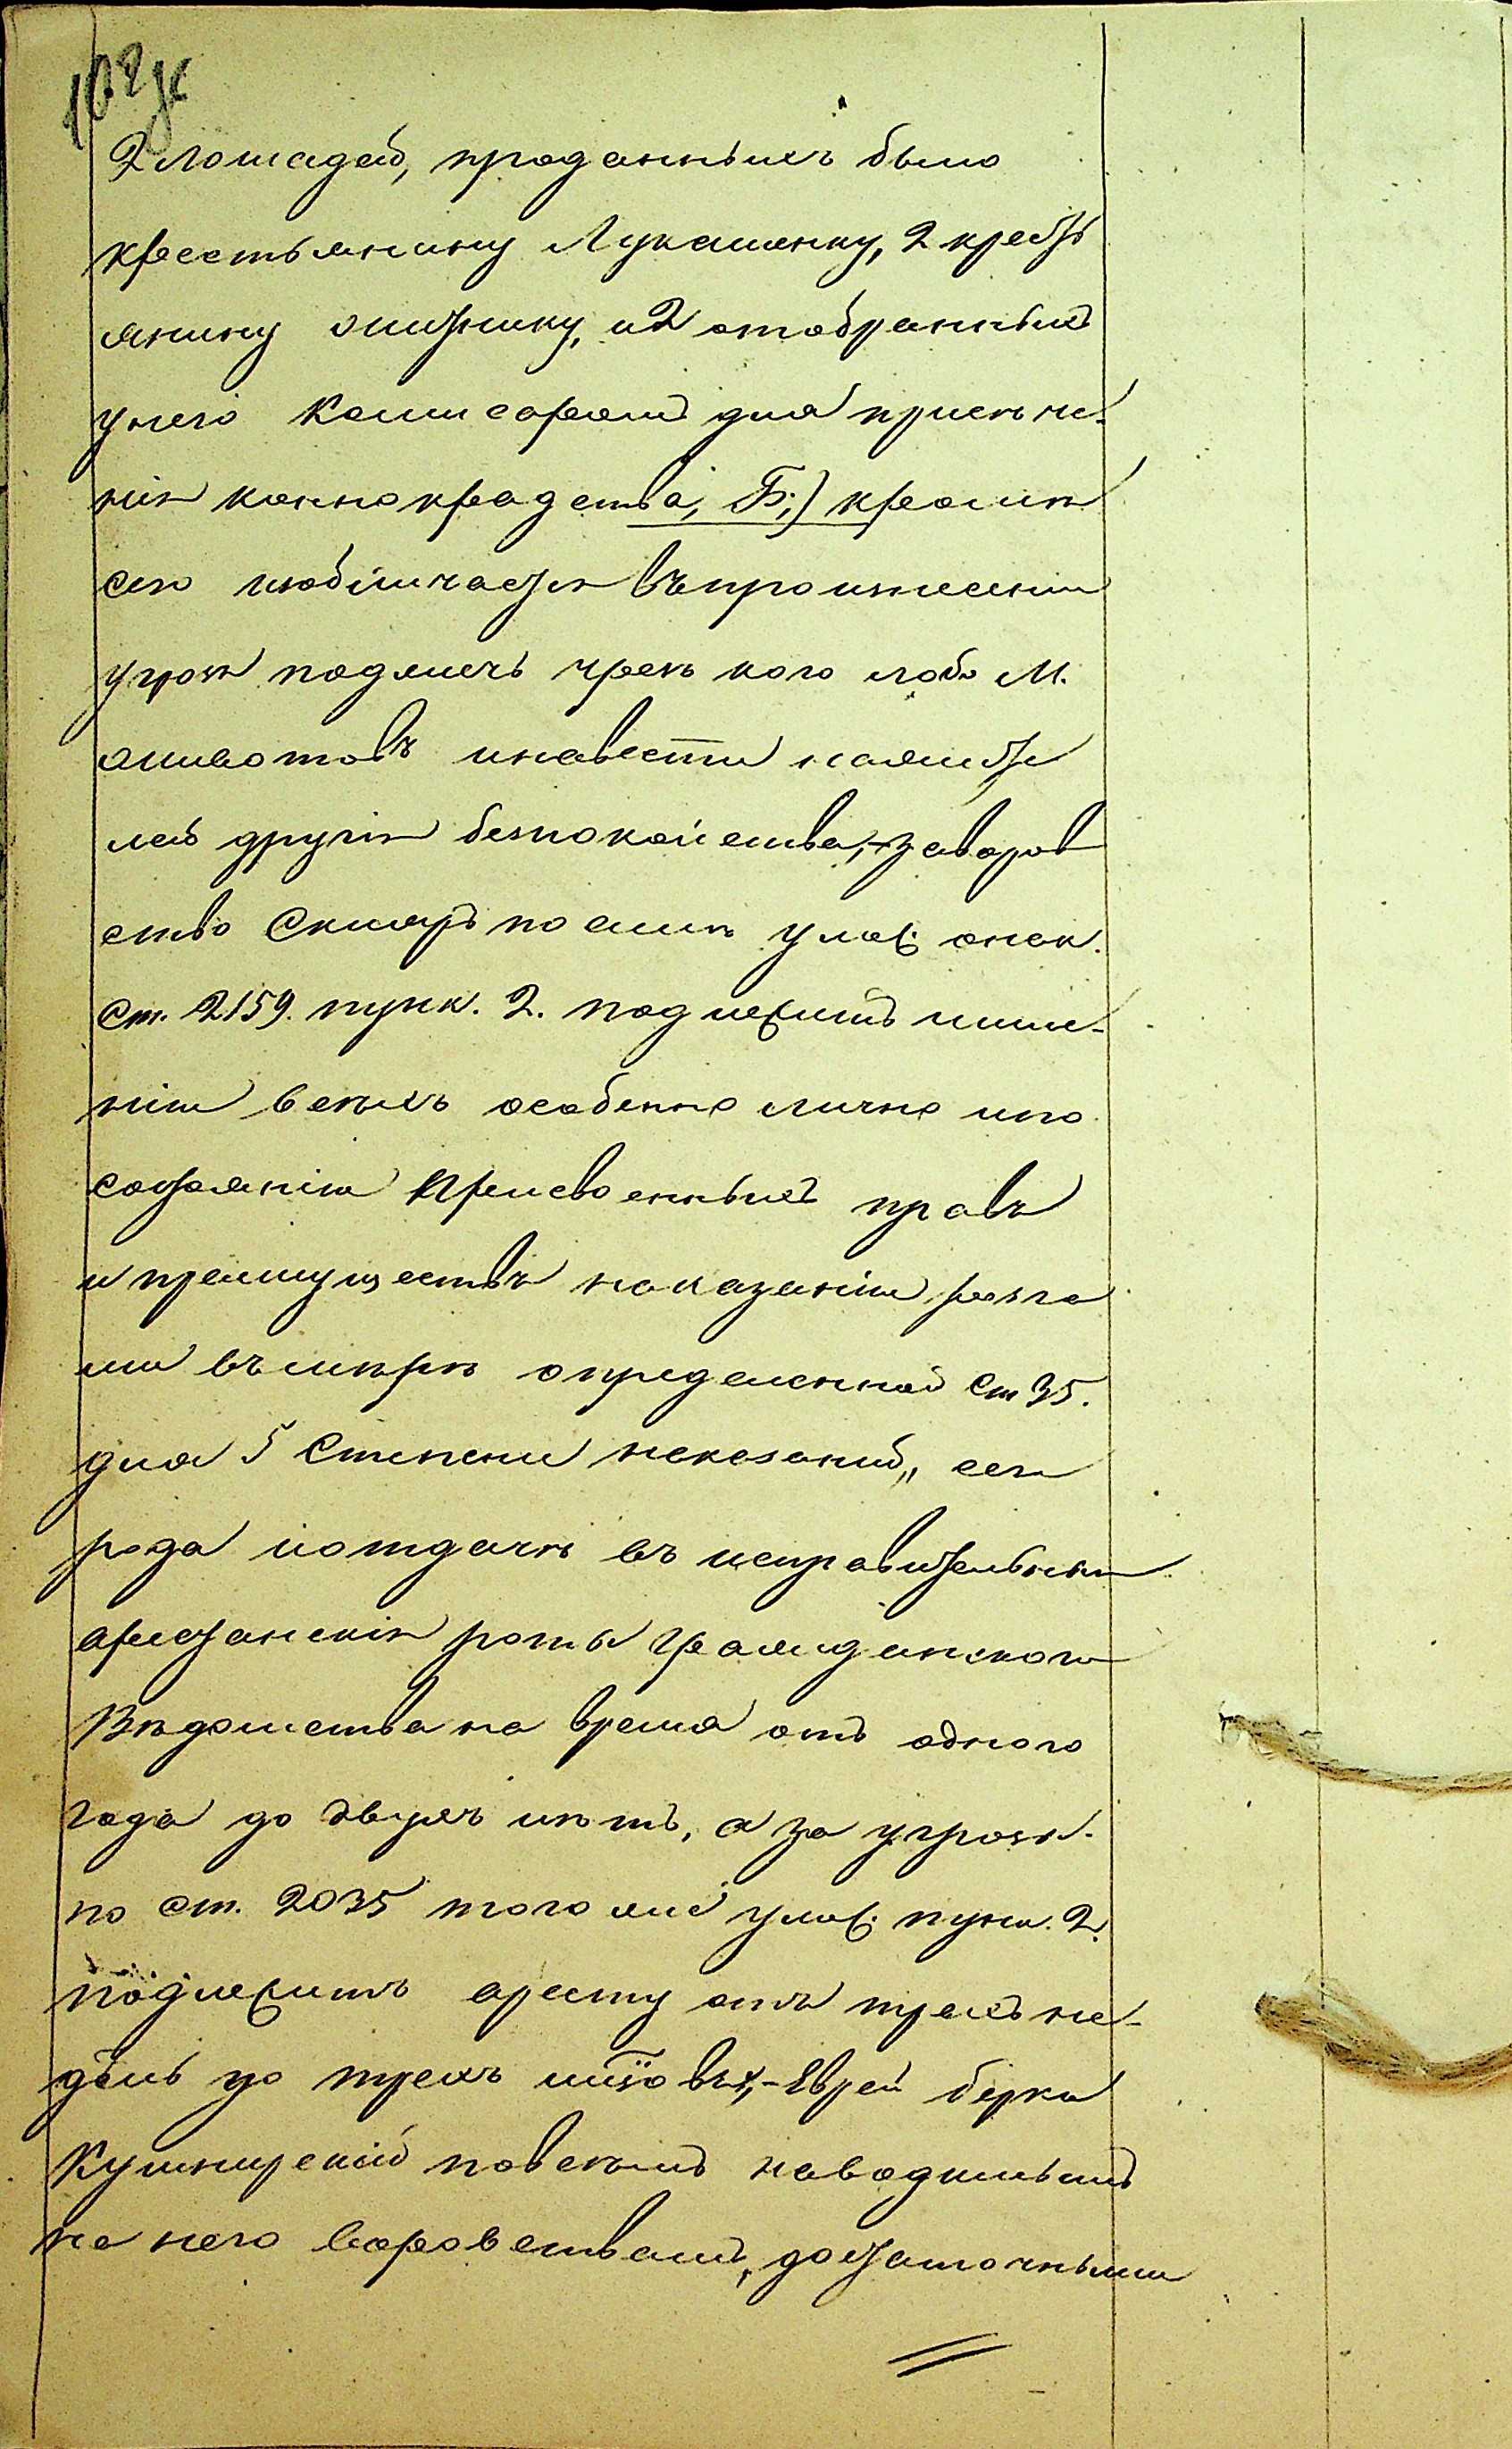 2 лошадей, проданныхъ было
крестьянину Лукашенку, 2 кресть
янину и 2 отобранныхъ
у него Комисаромъ для пресѣче-
нія конокрадства, Б;) кромѣ
сего изобличается въ произнесеніи
угрозъ поджечь чрезъ кого либо М.
Животовъ и навести на жите
лей другія безпокойства, - за воров
ство Скляръ по силѣ улож. о нак.
Ст. 2159. пунк. 2. подлежитъ лише-
нію всѣхъ особенно лично и по
состоянію присвоенныхъ правъ
и преимуществъ наказанію розга
ми въ мѣрѣ определенной Ст 35.
для 5 Степени наказаній, сего
рода и отдачѣ въ исправительныя
арестанскія роты гражданскаго
Вѣдомства на время отъ одного
года до двухъ лѣтъ, а за угрозы
по ст. 2035 того же улож. пунк. 2.
подлежитъ аресту отъ трехъ не-
дѣль до трехъ - Еврей Берко
Кушнирскій по всѣмъ наводимымъ
на него воровствамъ, достаточными